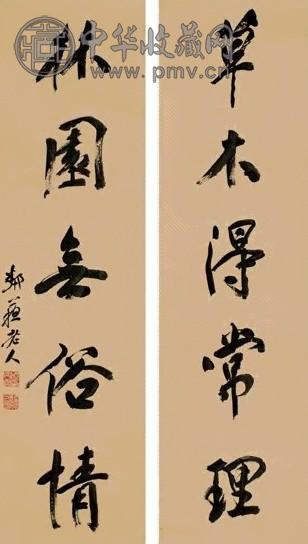 草木得常理
林園無俗情
鄰蘇老人
中华收藏网
www.pmv.cn